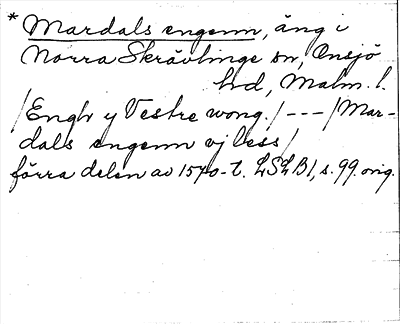 * Mardals engenn, äng i
Norra Skrävlinge sn, Onsjö
hd, Malm. l.
/Engh y Vestre wong./ --- /Mar-
dals engenn vj less/
förra delen av 1570-t. LSLB1, s. 99. orig.